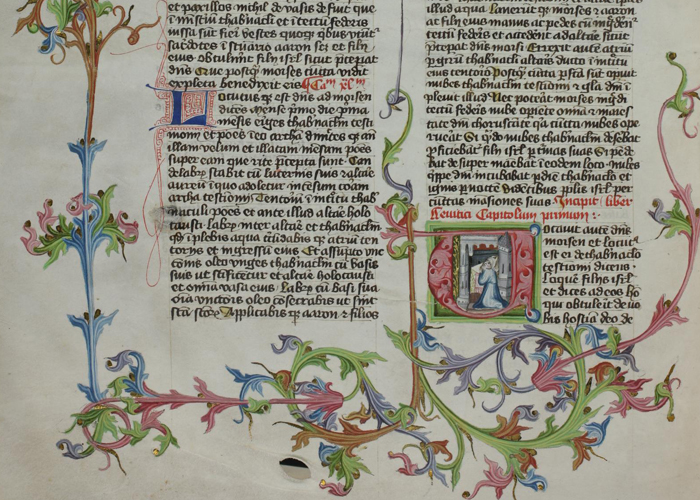 et paxillos nichil de vasis defuit que
i mīst'iū thabnacli et ī tectū federis
iussa sūt fieri vestes quoqz qbus vtūt'
sacdotes ī sc̄tuario aaron scz et filij
eius obtulerūt filij isrl sicut pceperat
dn̄s Que postqm moyses cūcta vidit
expleta benedixit eis Cam xl
Locutus qz est dn̄s ad moisen
dicēs Mense pimo die pima
mesis eriges thabnaclm testi
monij et pōes ī eo archā dimittes qz an̄
illam velum et illatam mensam pōes
super eam que rite pcepta sunt Can
delabz stabit cū lucernis suis et altare
aureū ī quo adoletur incēsum corā
archa testimonij Tentoriū ī introitu thab
naculi pōes et ante illud altare holo
causti labrū inter altare et thabnaclm
qd īplebis aqua circūdabis qz atriū ten
torijs et ingressū eius Et assūpto vnc
tiōis oleo vnges thabnaclm cū vasis
suis ut sctificetur et altare holocausti
et omnia vasa eius Labrū cū basi sua
oīa vnctiōis oleo cōsecrabis ut sint
scta sctoz Applicabis qz aaron et filios
illud aqua Laueruntqz moyses et aaron
ac filij eius manus ac pedes cū īgrederent'
tectū federis et accederent ad altare sicut
pceperat dn̄s moysi Erexit aute atriū
p girū thabnacli et altaris ducto ī introitu
eius tentorio Postqm cūcta pfcta sūt operuit
nubes thabnaclm testimonij et gla dn̄i ī
pleuit illud Nec poterat moyses īngdi
tectū federis nube operiēte oīa et maies
tate dn̄i choruscāte qz cūcta nubes ope
rueāt Si qn̄do nubes thabnaclm deserebat
pficiscebāt' filij isrl p turmas suas Si pēde
bat desuper manebāt ī eodem loco nubes
qippe dn̄i incubabat p diem thabnaclo et
ignis p nocte vidētibus pplis isrl per
cūctas mansiones suas Incipit liber
leuitici Capitulum primum
Uocauit aute dn̄s
moisen et locut'
est ei de thabnaclo
testimonij dicens
loquere filijs isrl
et dices ad eos ho
mo qui obtulerit de vo
bis hostiā dn̄o de